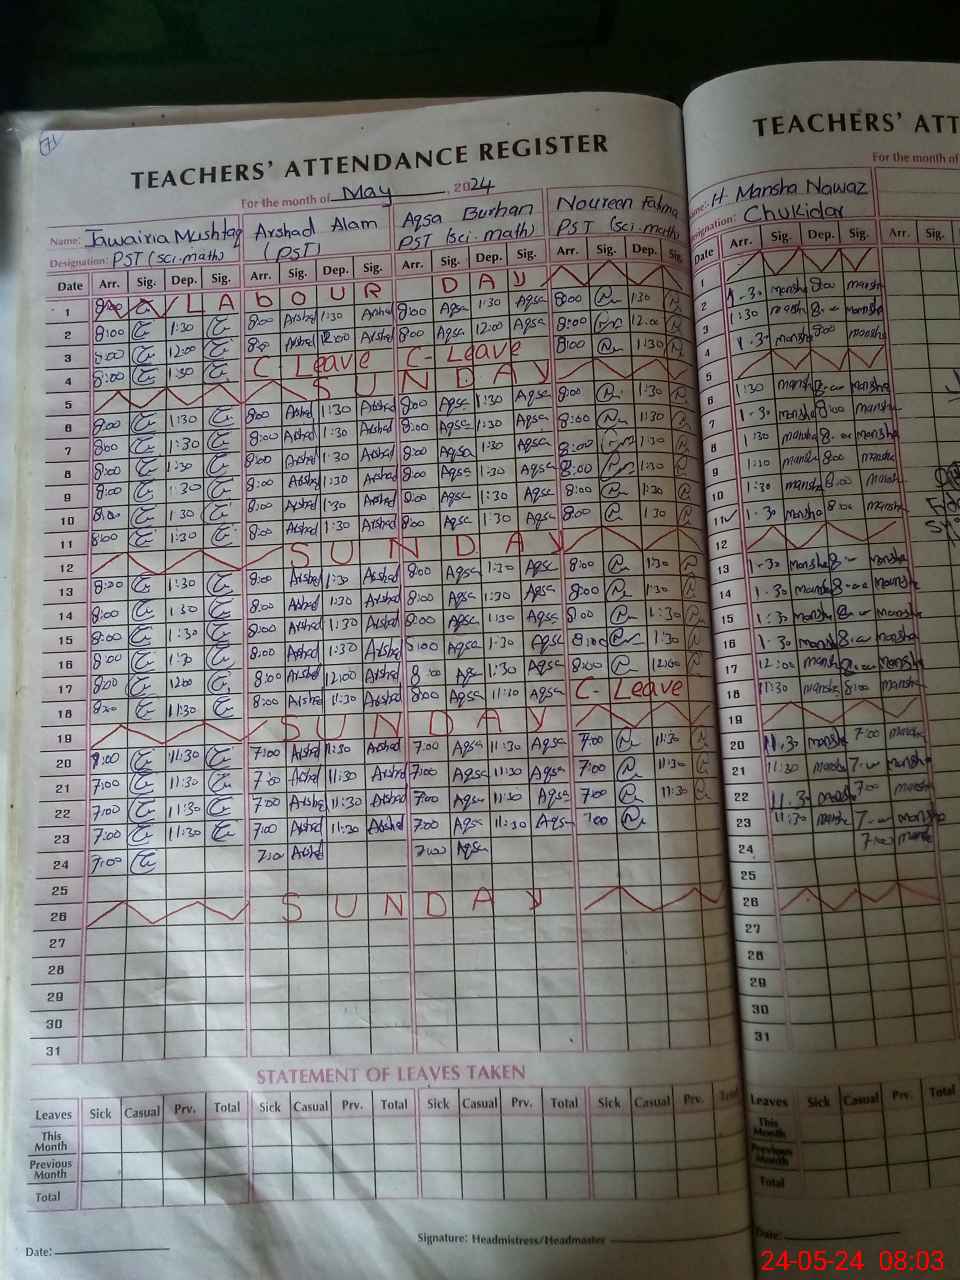 TEACHERS' ATTENDANCE REGISTER
For the month of May, 2024
Name: Jawairia Mushtaq Arshad Alam Aqsa Burhan Noureen Fatma
Designation: PST (sci.math) (PST) PST (sci.math) PST (sci.math)
Date Arr. Sig. Dep. Sig. Arr. Sig. Dep. Sig. Arr. Sig. Dep. Sig. Arr. Sig. Dep. Sig.
1 LABOUR DAY
2 8:00 1:30 8:00 Arshad 1:30 Arshad 8:00 Aqsa 1:30 Aqsa 8:00 1:30
3 8:00 12:00 Arshad 12:00 Arshad 8:00 Aqsa 12:00 Aqsa 8:00 12:00
4 8:00 1:30 C- Leave C- Leave 8:00 1:30
5 SUNDAY
6 8:00 1:30 8:00 Arshad 1:30 Arshad 8:00 Aqsa 1:30 Aqsa 8:00 1:30
7 8:00 1:30 8:00 Arshad 1:30 Arshad 8:00 Aqsa 1:30 Aqsa 8:00
8 8:00 1:30 8:00 Arshad 1:30 Arshad 8:00 Aqsa 1:30 Aqsa 8:00 1:30
9 8:00 1:30 8:00 Arshad 1:30 Arshad 8:00 Aqsa 1:30 Aqsa 8:00 1:30
10 8:00 1:30 8:00 Arshad 1:30 Arshad 8:00 Aqsa 1:30 Aqsa 8:00 1:30
11 8:00 1:30 8:00 Arshad 1:30 Arshad 8:00 Aqsa 1:30 Aqsa 8:00 1:30
12 SUNDAY
13 1:30 8:00 Arshad 1:30 Arshad 8:00 Aqsa 1:30 Aqsa 8:00 1:30
14 8:00 1:30 8:00 Arshad 1:30 Arshad 8:00 Aqsa 1:30 Aqsa 8:00 1:30
15 8:00 1:30 8:00 Arshad 1:30 Arshad 8:00 Aqsa 1:30 Aqsa 8:00 1:30
16 8:00 1:30 8:00 Arshad 1:30 Arshad 8:00 Aqsa 1:30 Aqsa 8:00 1:30
17 8:00 12:00 8:00 Arshad 12:00 Arshad 8:00 Aqsa Aqsa 8:00 12:00
18 11:30 8:00 Arshad 11:30 Arshad 8:00 Aqsa Aqsa C- Leave
19 SUNDAY
20 7:00 11:30 7:00 Arshad 11:30 Arshad 7:00 Aqsa 11:30 Aqsa 7:00 11:30
21 7:00 11:30 7:00 Arshad 11:30 Arshad 7:00 Aqsa 11:30 Aqsa 7:00 11:30
22 7:00 11:30 7:00 Arshad 11:30 Arshad 7:00 Aqsa 11:30 Aqsa 7:00 11:30
23 7:00 11:30 7:00 Arshad 11:30 Arshad 7:00 Aqsa 11:30 Aqsa 7:00
24 7:00 7:00 Arshad 7:00 Aqsa
25
26 SUNDAY
27
28
29
30
31
STATEMENT OF LEAVES TAKEN
Leaves Sick Casual Prv. Total Sick Casual Prv. Total Sick Casual Prv. Total Sick Casual Prv. Total
This Month
Previous Month
Total
Date:
Signature: Headmistress/Headmaster
TEACHERS' ATT
For the month of
Name: H. Mansha Nawaz
Designation: Chukidar
Date Arr. Sig. Dep. Sig. Arr. Sig.
1
2 1.30 mansha 8:00 mansha
3 1:30 mansha mansha
4 1.30 mansha 8:00 mansha
5
6 1:30 mansha mansha
7 1.30 mansha 8:00 mansha
8 1:30 mansha mansha
9 1:30 mansha 8:00 mansha
10 1:30 mansha 8:00 mansha
11 1.30 mansha 8:00 mansha
12
13 1.30 mansha mansha
14 1.30 mansha mansha
15 1:30 mansha mansha
16 1.30 mansha mansha
17 12:00 mansha mansha
18 11:30 mansha 8:00 mansha
19
20 11.30 mansha 7:00 mansha
21 11:30 mansha mansha
22 11.30 mansha 7:00 mansha
23 11:30 mansha mansha
24 7:00 mansha
25
26
27
28
29
30
31
Leaves Sick Casual Prv. Total
This Month
Previous Month
Total
Date:
24-05-24 08:03